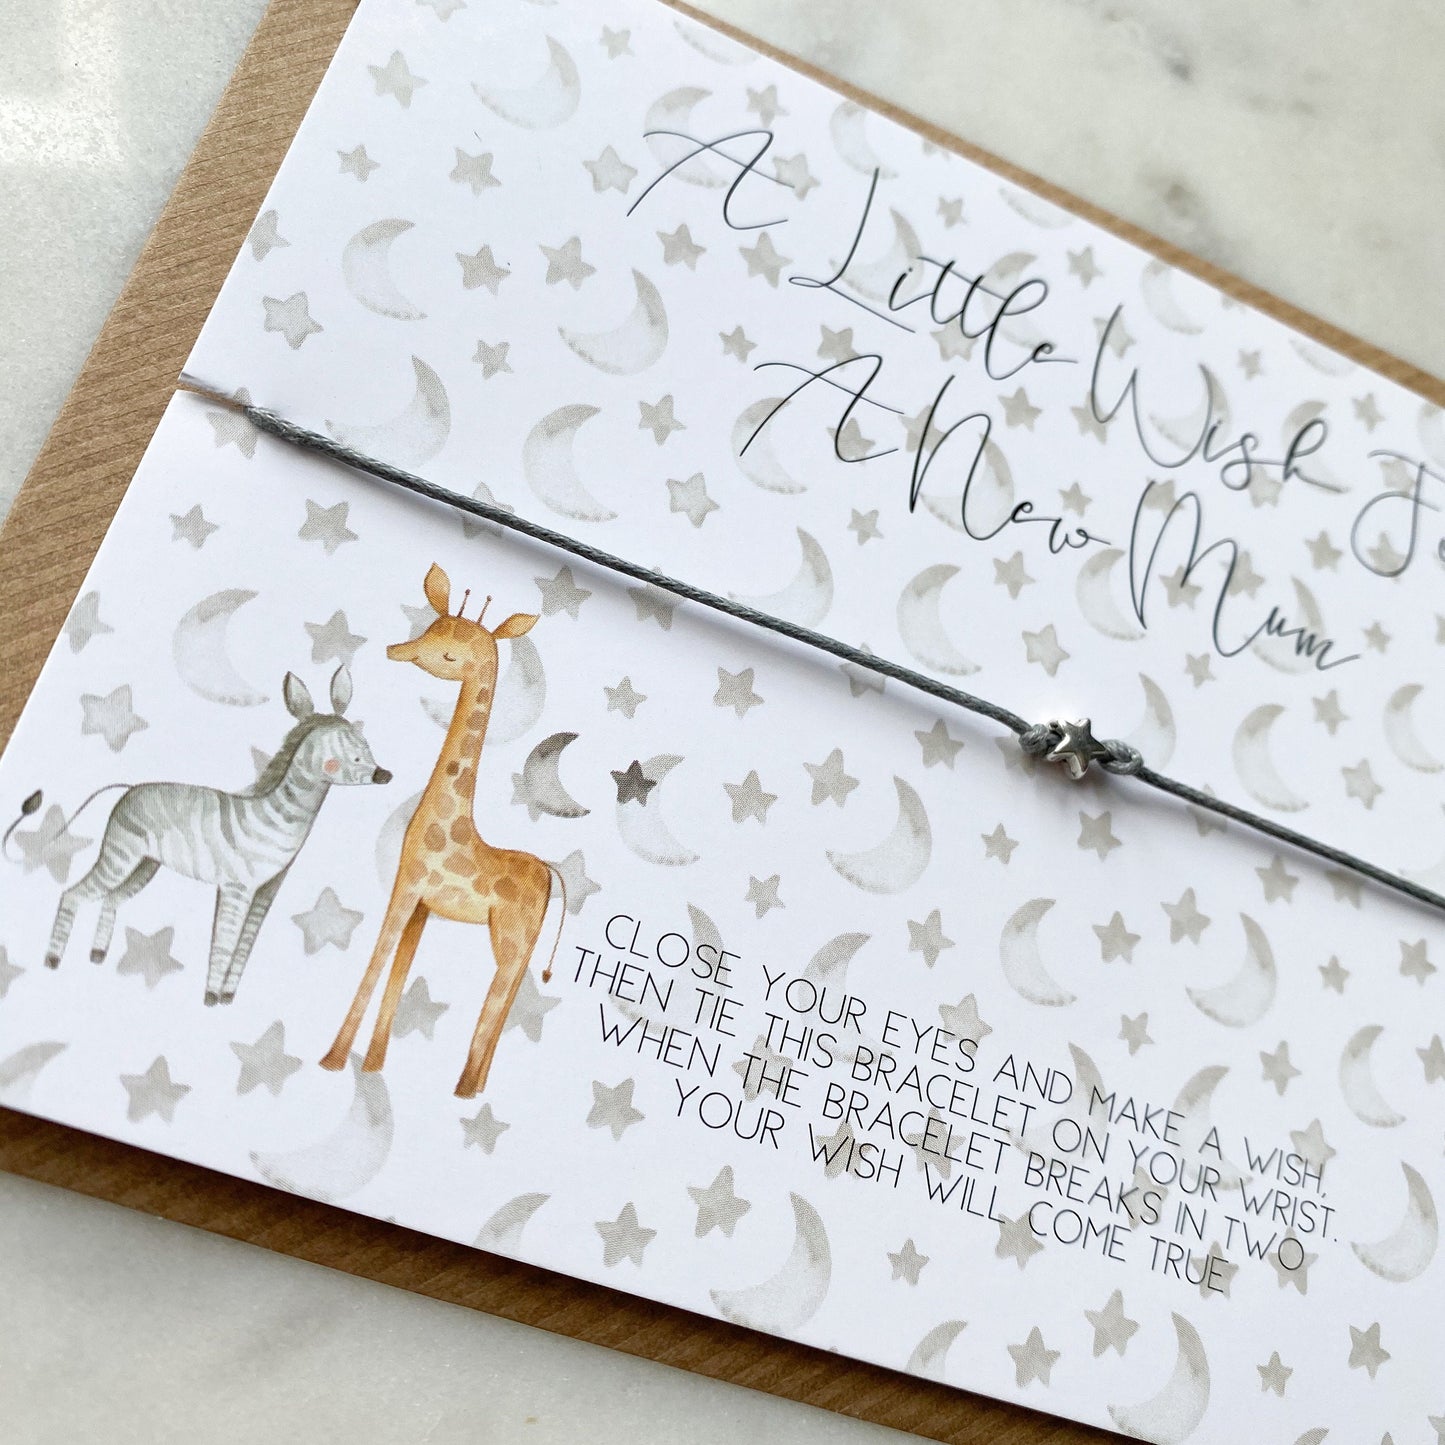 A Little Wish Fo
A New Mum
CLOSE YOUR EYES AND MAKE A WISH,
THEN TIE THIS BRACELET ON YOUR WRIST.
WHEN THE BRACELET BREAKS IN TWO
YOUR WISH WILL COME TRUE